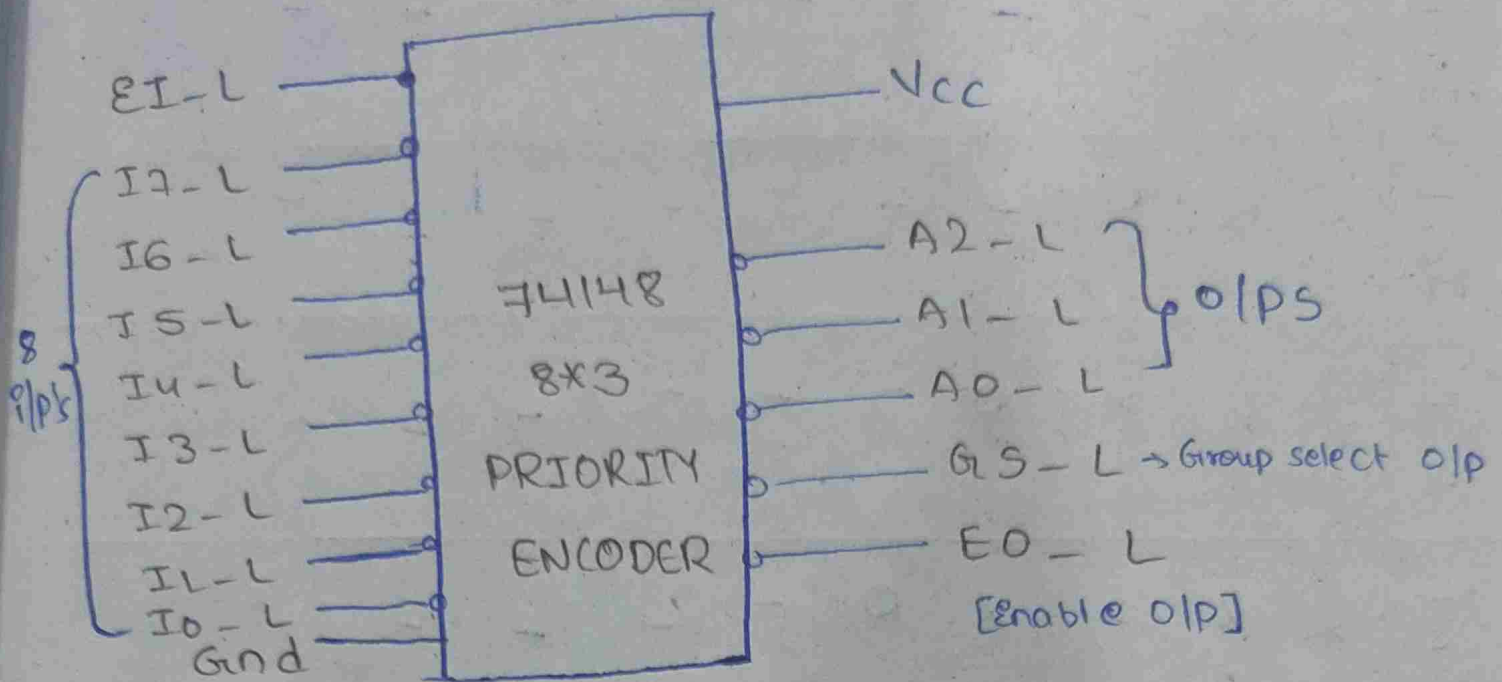 EI-L
I7-L
I6-L
I5-L
I4-L
I3-L
I2-L
I1-L
I0-L
Gnd
8
i/p's
74148
8*3
PRIORITY
ENCODER
Vcc
A2-L
A1-L
A0-L
o/ps
GS-L → Group select o/p
EO-L
[Enable o/p]